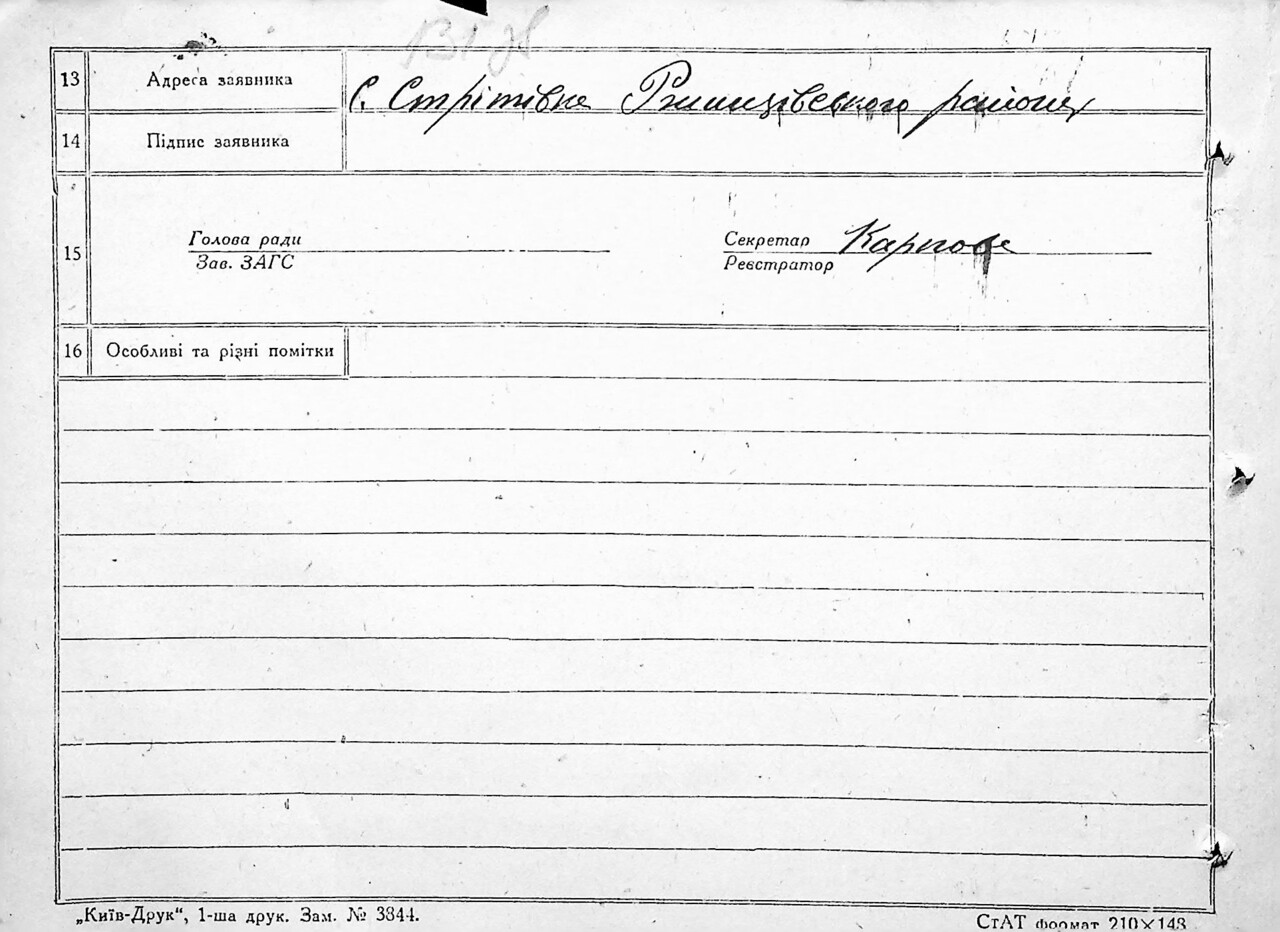 13 Адреса заявника с. Стрітівка Ржищівського району
14 Підпис заявника
15 Голова ради Секретар Карпова
Зав. ЗАГС Реєстратор
16 Особливі та різні помітки
„Київ-Друк“, 1-ша друк. Зам. № 3844. СтАТ формат 210×148